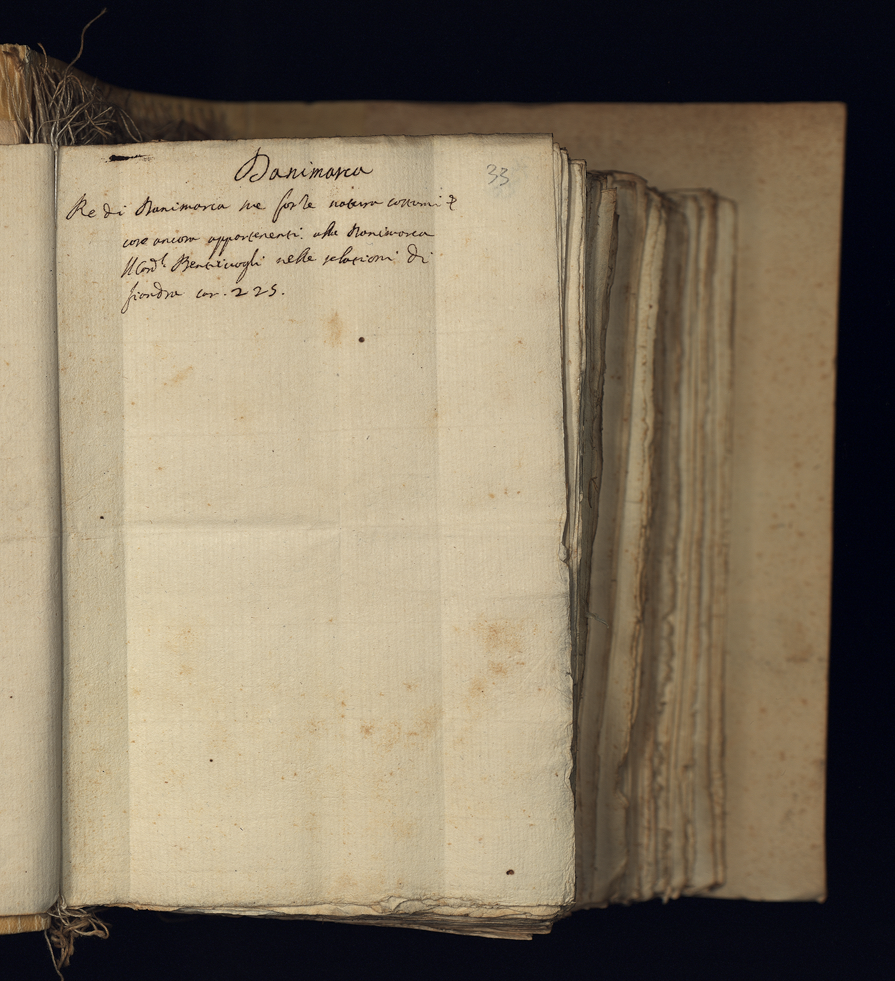 Danimarca
33
Re di Danimarca sue forze natura costumi &
cose ancora appartenenti alla Danimarca
Il Card.l Bentivogli nelle relationi di
fiandra car. 225.